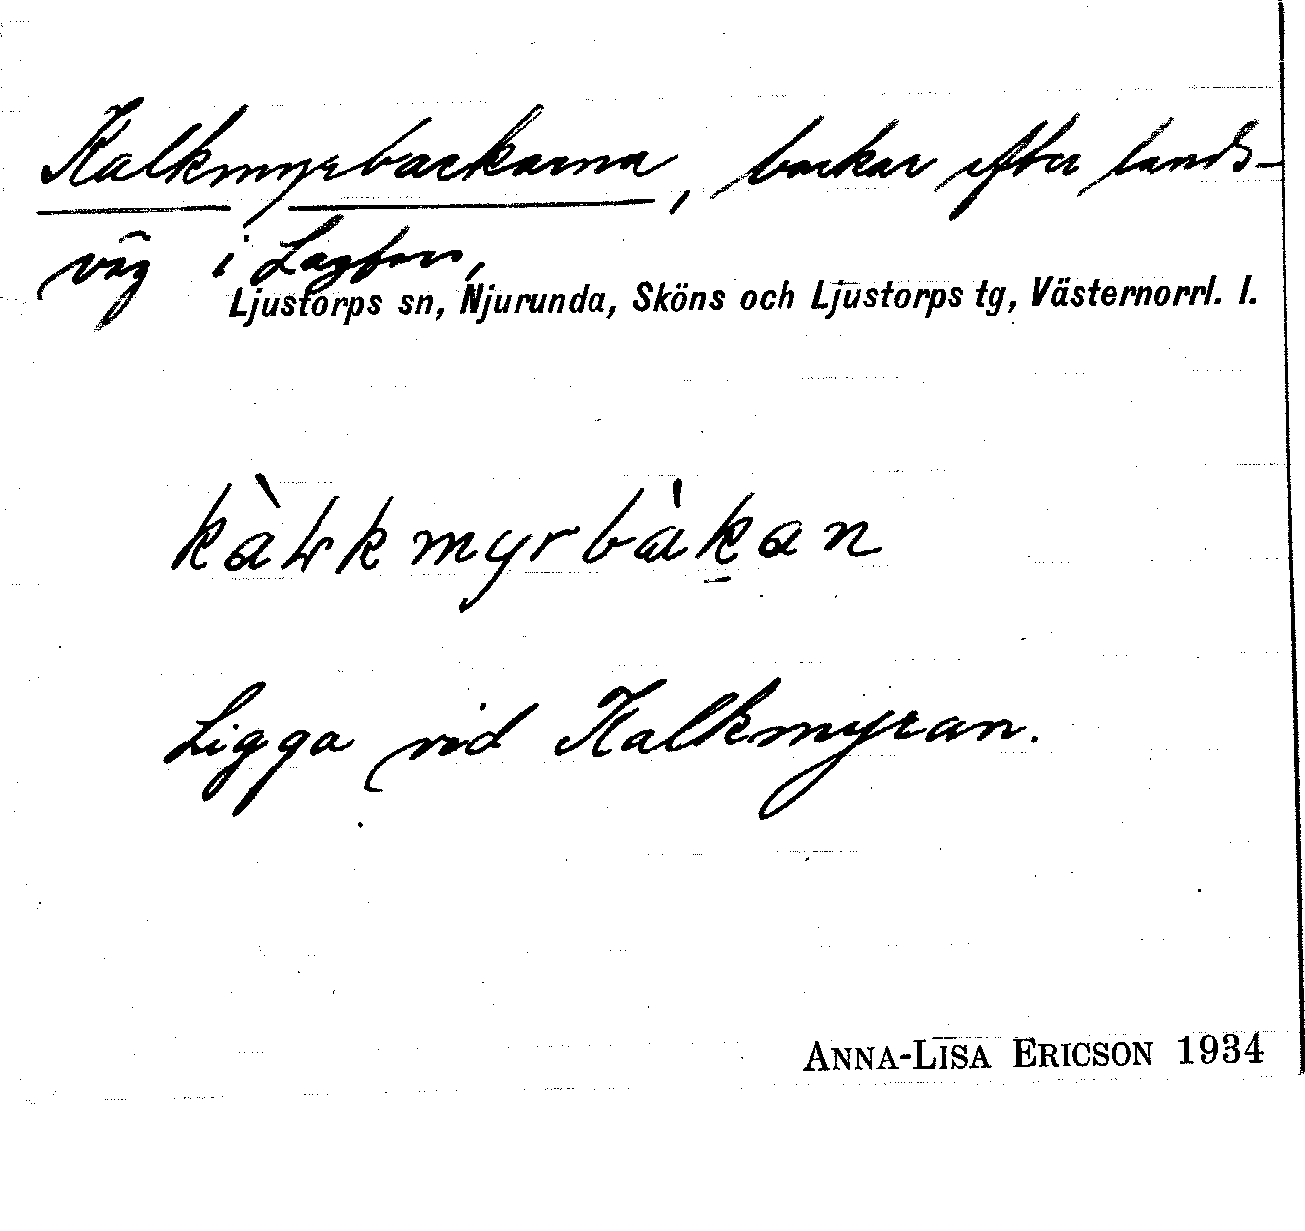 Kalkmyrbackarna, backar efter lands-
väg i Lagfors,
Ljustorps sn, Njurunda, Sköns och Ljustorps tg, Västernorrl. l.
kàlkmyrbàkan
Ligga vid Kalkmyran.
ANNA-LISA ERICSON 1934